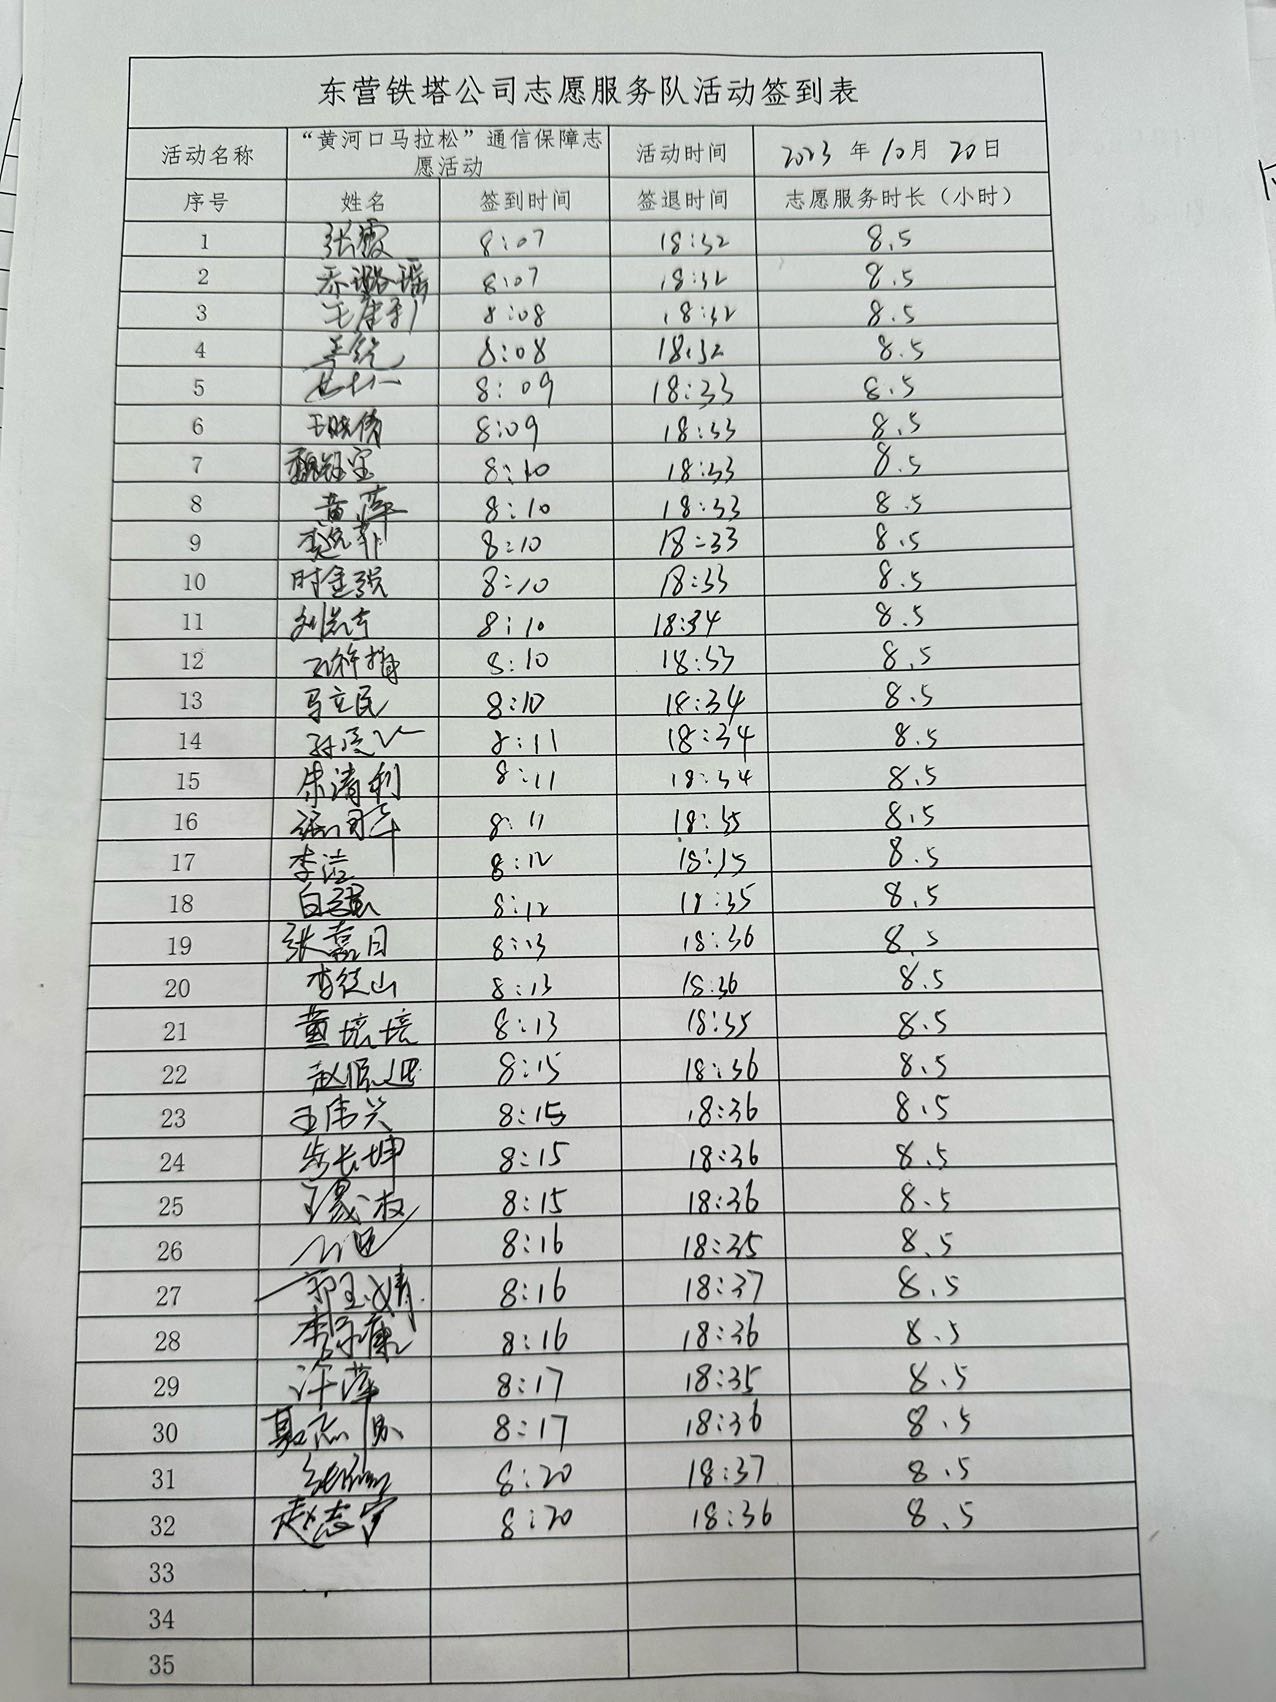 东营铁塔公司志愿服务队活动签到表
活动名称 “黄河口马拉松”通信保障志愿活动 活动时间 2023年10月20日
序号 姓名 签到时间 签退时间 志愿服务时长（小时）
1 张霞 8:07 18:32 8.5
2 乔璐瑶 8:07 18:32 8.5
3 8:08 18:32 8.5
4 8:08 18:32 8.5
5 8:09 18:33 8.5
6 王晓倩 8:09 18:33 8.5
7 魏钰宝 8:10 18:33 8.5
8 黄萍 8:10 18:33 8.5
9 8:10 18:33 8.5
10 时金强 8:10 18:33 8.5
11 8:10 18:34 8.5
12 8:10 18:33 8.5
13 马立民 8:10 18:34 8.5
14 8:11 18:34 8.5
15 朱清利 8:11 18:34 8.5
16 8:11 18:35 8.5
17 李洁 8:12 18:35 8.5
18 8:12 18:35 8.5
19 张嘉日 8:13 18:36 8.5
20 8:13 18:36 8.5
21 董培培 8:13 18:35 8.5
22 8:15 18:36 8.5
23 王伟兴 8:15 18:36 8.5
24 8:15 18:36 8.5
25 8:15 18:36 8.5
26 8:16 18:35 8.5
27 郭玉婧 8:16 18:37 8.5
28 8:16 18:36 8.5
29 许萍 8:17 18:35 8.5
30 8:17 18:36 8.5
31 8:20 18:37 8.5
32 赵志宇 8:20 18:36 8.5
33
34
35